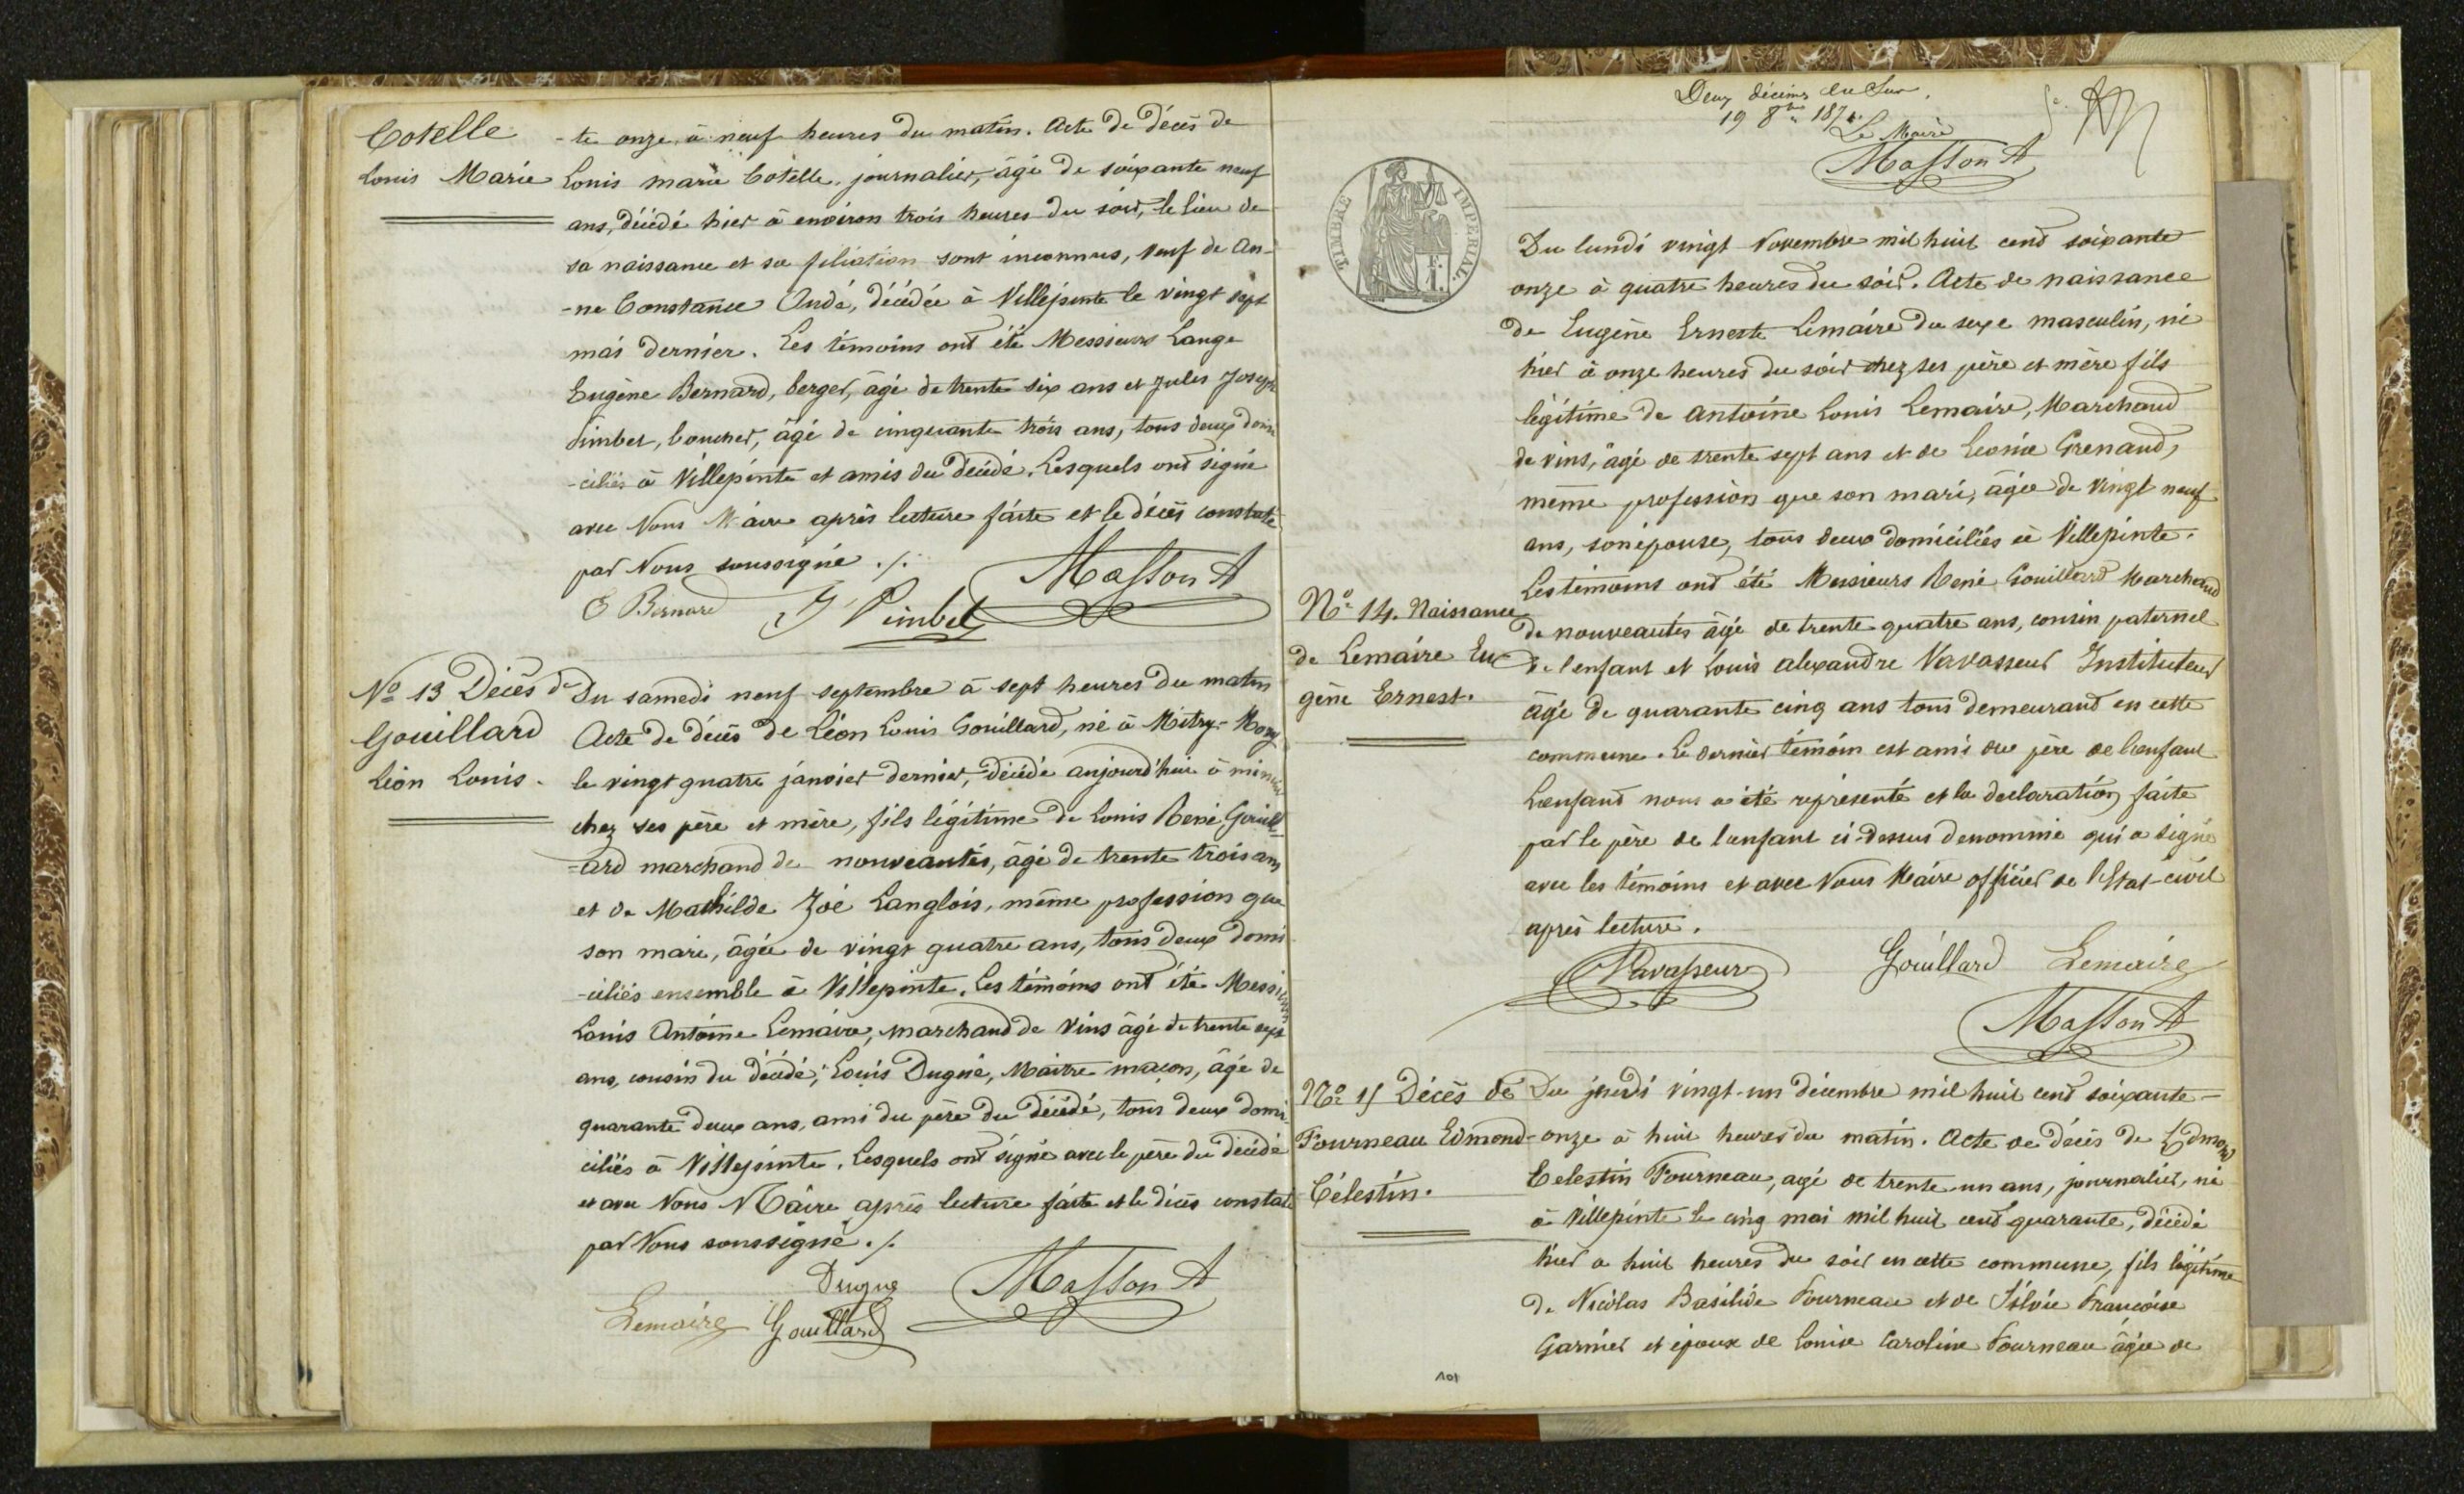 Cotelle
Louis Marie
-te onze, à neuf heures du matin. Acte de décès de
Louis Marie Cotelle, journalier, âgé de soixante neuf
ans, décédé hier à environ trois heures du soir, le lieu de
sa naissance et sa filiation sont inconnus, veuf de An-
-ne Constance Oudé, décédée à Villepinte le vingt sept
mai dernier. Les témoins ont été Messieurs Lange
Eugène Bernard, berger, âgé de trente six ans et Jules Joseph
Pimbet, boucher, âgé de cinquante trois ans, tous deux domi
-ciliés à Villepinte et amis du décédé. Lesquels ont signé
avec Nous Maire après lecture faite et le décès constaté
par Nous soussigné ./.
E Bernard J Pimbet Masson A
No 13 Décès de
Gouillard
Léon Louis.
Du samedi neuf septembre à sept heures du matin
Acte de décès de Léon Louis Gouillard, né à Mitry-Mory
le vingt quatre janvier dernier, décédé aujourd'hui à minuit
chez ses père et mère, fils légitime de Louis René Gouill-
-ard marchand de nouveautés, âgé de trente trois ans
et de Mathilde Zoé Langlois, même profession que
son mari, âgée de vingt quatre ans, tous deux domi
-ciliés ensemble à Villepinte. Les témoins ont été Messieurs
Louis Antoine Lemaire, marchand de vins âgé de trente sept
ans, cousin du décédé, Louis Dugué, Maître maçon, âgé de
quarante deux ans, ami du père du décédé, tous deux domi-
ciliés à Villepinte. Lesquels ont signé avec le père du décédé
et avec Nous Maire après lecture faite et le décès constaté
par Nous soussigné ./.
Dugué Masson A
Lemaire Gouillard
Deux décimes en sus.
19 8bre 1871.
Le Maire
Masson A
TIMBRE IMPERIAL
Du lundi vingt Novembre mil huit cent soixante
onze à quatre heures du soir. Acte de naissance
de Eugène Ernest Lemaire du sexe masculin, né
hier à onze heures du soir chez ses père et mère fils
légitime de Antoine Louis Lemaire, Marchand
de vins, âgé de trente sept ans et de Leonie Grenaud,
même profession que son mari, âgée de vingt neuf
ans, son épouse, tous deux domiciliés à Villepinte.
Les témoins ont été Messieurs René Gouillard Marchand
de nouveautés âgé de trente quatre ans, cousin paternel
de l'enfant et Louis Alexandre Vavasseur Instituteur
âgé de quarante cinq ans tous demeurant en cette
commune. Le dernier témoin est ami du père de l'enfant
L'enfant nous a été représenté et la declaration faite
par le père de l'enfant ci-dessus denommé qui a signé
avec les témoins et avec Nous Maire officier de l'Etat-civil
après lecture.
No 14. Naissance
de Lemaire Eu
gène Ernest.
Vavasseur Gouillard Lemaire
Masson A
No 15 Décès de
Fourneau Edmond-
Célestin.
Du jeudi vingt-un décembre mil huit cent soixante-
onze à huit heures du matin. Acte de décès de Edmond
Celestin Fourneau, agé de trente un ans, journalier, né
à Villepinte le cinq mai mil huit cent quarante, décédé
hier a huit heures du soir en cette commune, fils légitime
de Nicolas Basilide Fourneau et de Silvie Françoise
Garnier et époux de Louise Caroline Fourneau âgée de
101